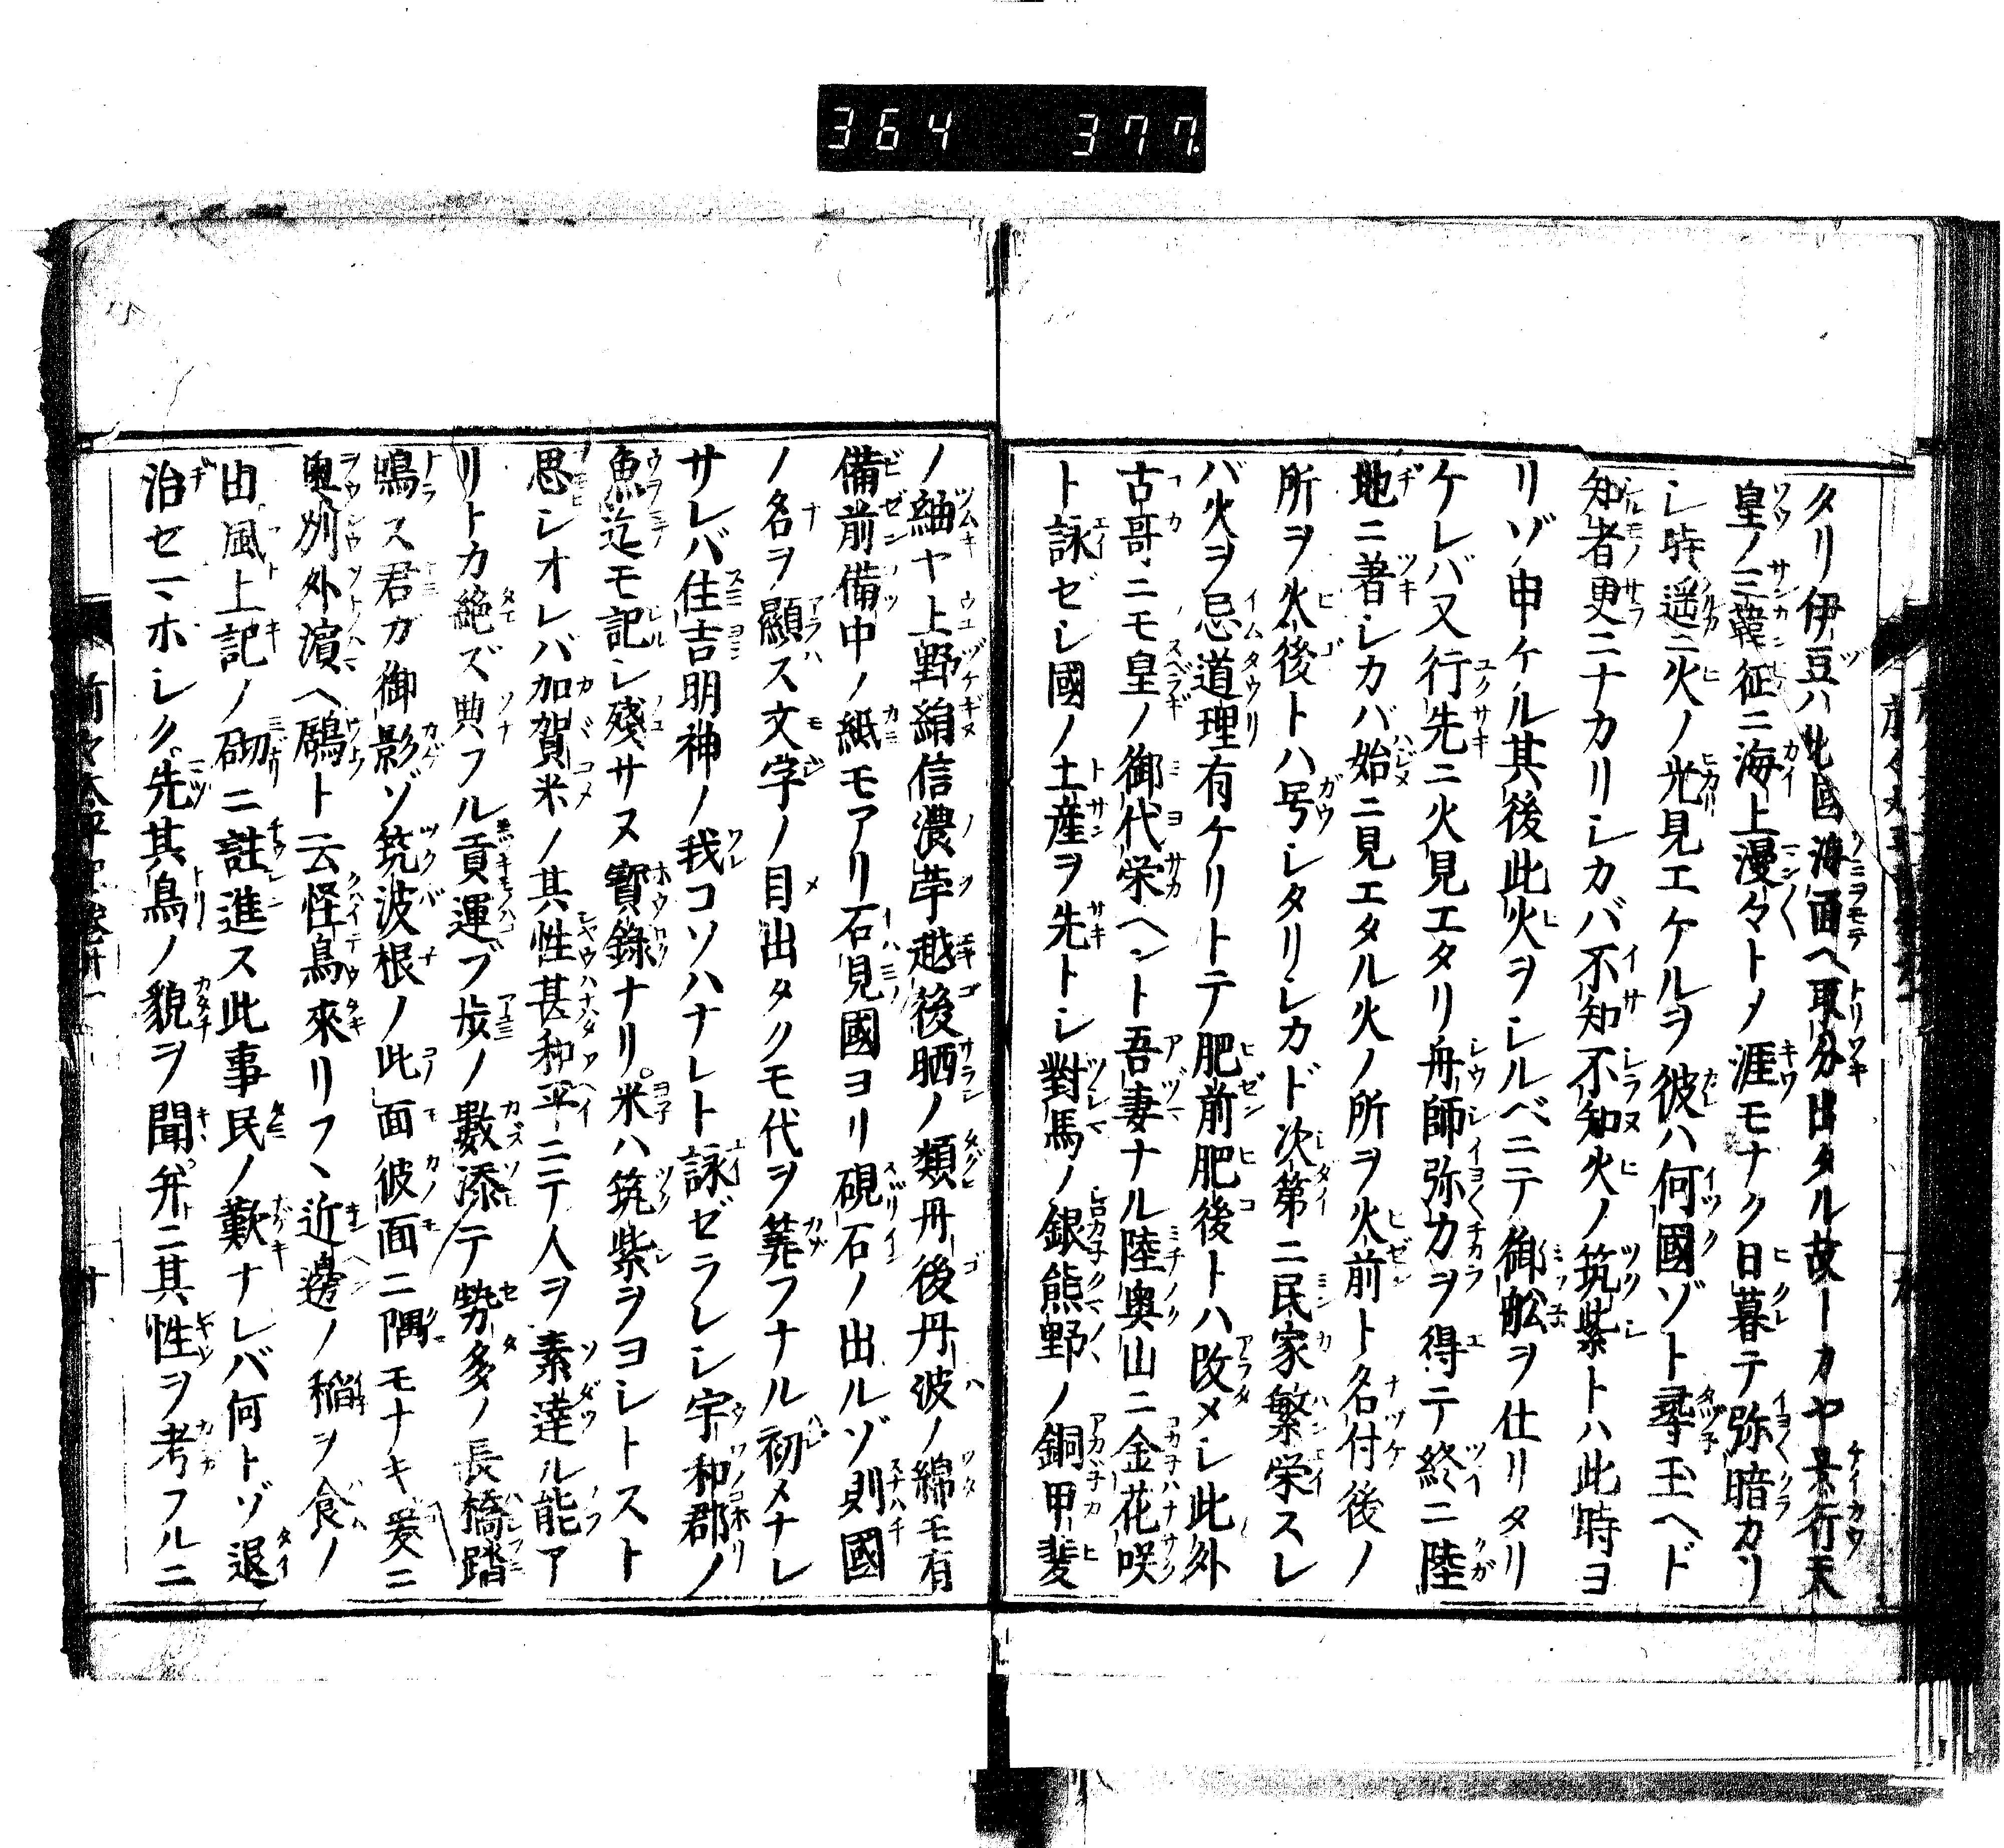 364 377
タリ伊豆ハ此國海面ヘ取分出タル故ーカヤ景行天
皇ノ三韓征ニ海上漫々トメ涯モナク日暮テ弥暗カリ
シ時遥ニ火ノ光見エケルヲ彼ハ何國ゾト尋玉ヘド
知者更ニナカリシカバ不知不知火ノ筑紫トハ此時ヨ
リゾ申ケル其後此火ヲシルベニテ御舩ヲ仕リタリ
ケレバ又行先ニ火見エタリ舟師弥力ヲ得テ終ニ陸
地ニ著シカバ始ニ見エタル火ノ所ヲ火前ト名付後ノ
所ヲ火後トハ号シタリシカド次第ニ民家繁栄スレ
バ火ヲ忌道理有ケリトテ肥前肥後トハ改メシ此外
古哥ニモ皇ノ御代栄ヘント吾妻ナル陸奥山ニ金花咲
ト詠ゼシ國ノ土産ヲ先トシ對馬ノ銀熊野ノ銅甲斐
ノ紬ヤ上野絹信濃苧越後晒ノ類丹後丹波ノ綿モ有
備前備中ノ紙モアリ石見國ヨリ硯石ノ出ルゾ則國
ノ名ヲ顯ス文字ノ目出タクモ代ヲ筭フナル初メナレ
サレバ住吉明神ノ我コソハナレト詠ゼラレシ宇和郡ノ
魚迄モ記シ殘サヌ寳錄ナリ米ハ筑紫ヲヨシトスト
思シオレバ加賀米ノ其性甚和平ニテ人ヲ素達ル能ア
リトカ絶ズ典フル貢運ブ歩ノ數添テ勢多ノ長橋踏
鳴ス君ガ御影ゾ筑波根ノ此面彼面ニ隅モナキ爰ニ
奥州外濱ヘ鷊ト云怪鳥來リフヽ近邊ノ稲ヲ食ノ
由風土記ノ砌ニ註進ス此事民ノ歎ナレバ何トゾ退
治セマホシク先其鳥ノ貌ヲ聞弁ニ其性ヲ考フルニ